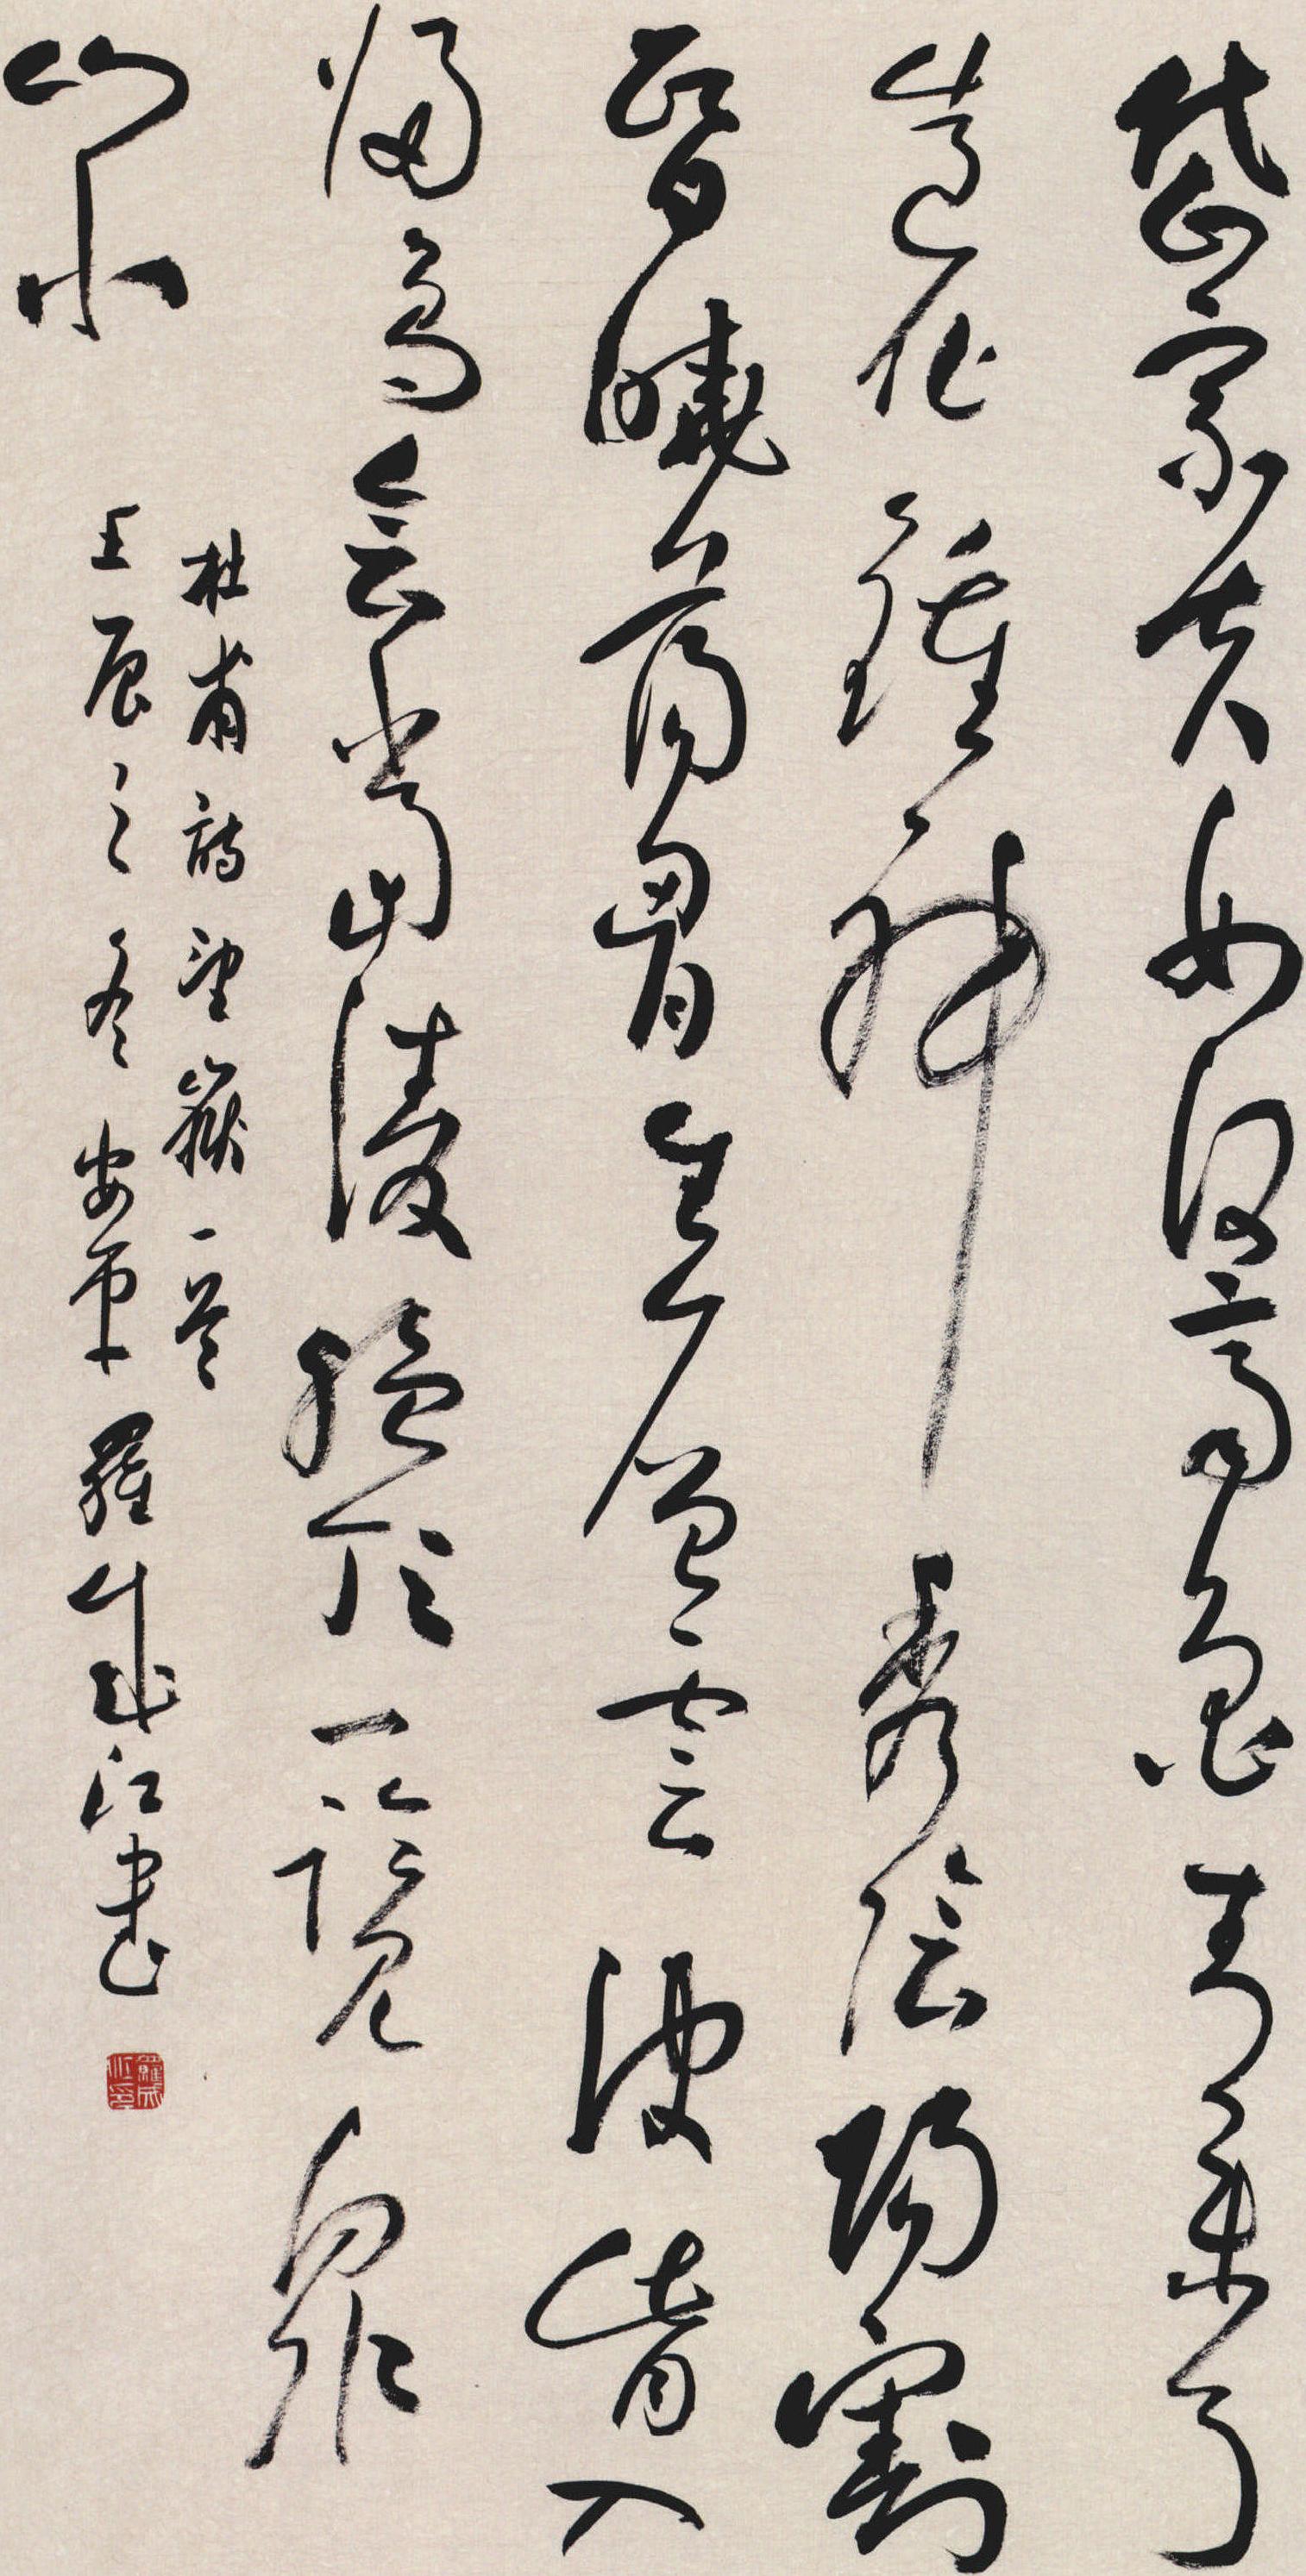 岱宗夫如何齊魯青未了
造化鍾神秀陰陽割
昏曉蕩胸生層雲決眥入
歸鳥會當凌絕頂一覽眾
山小
杜甫詩望嶽一首
壬辰之冬安平羅成江書